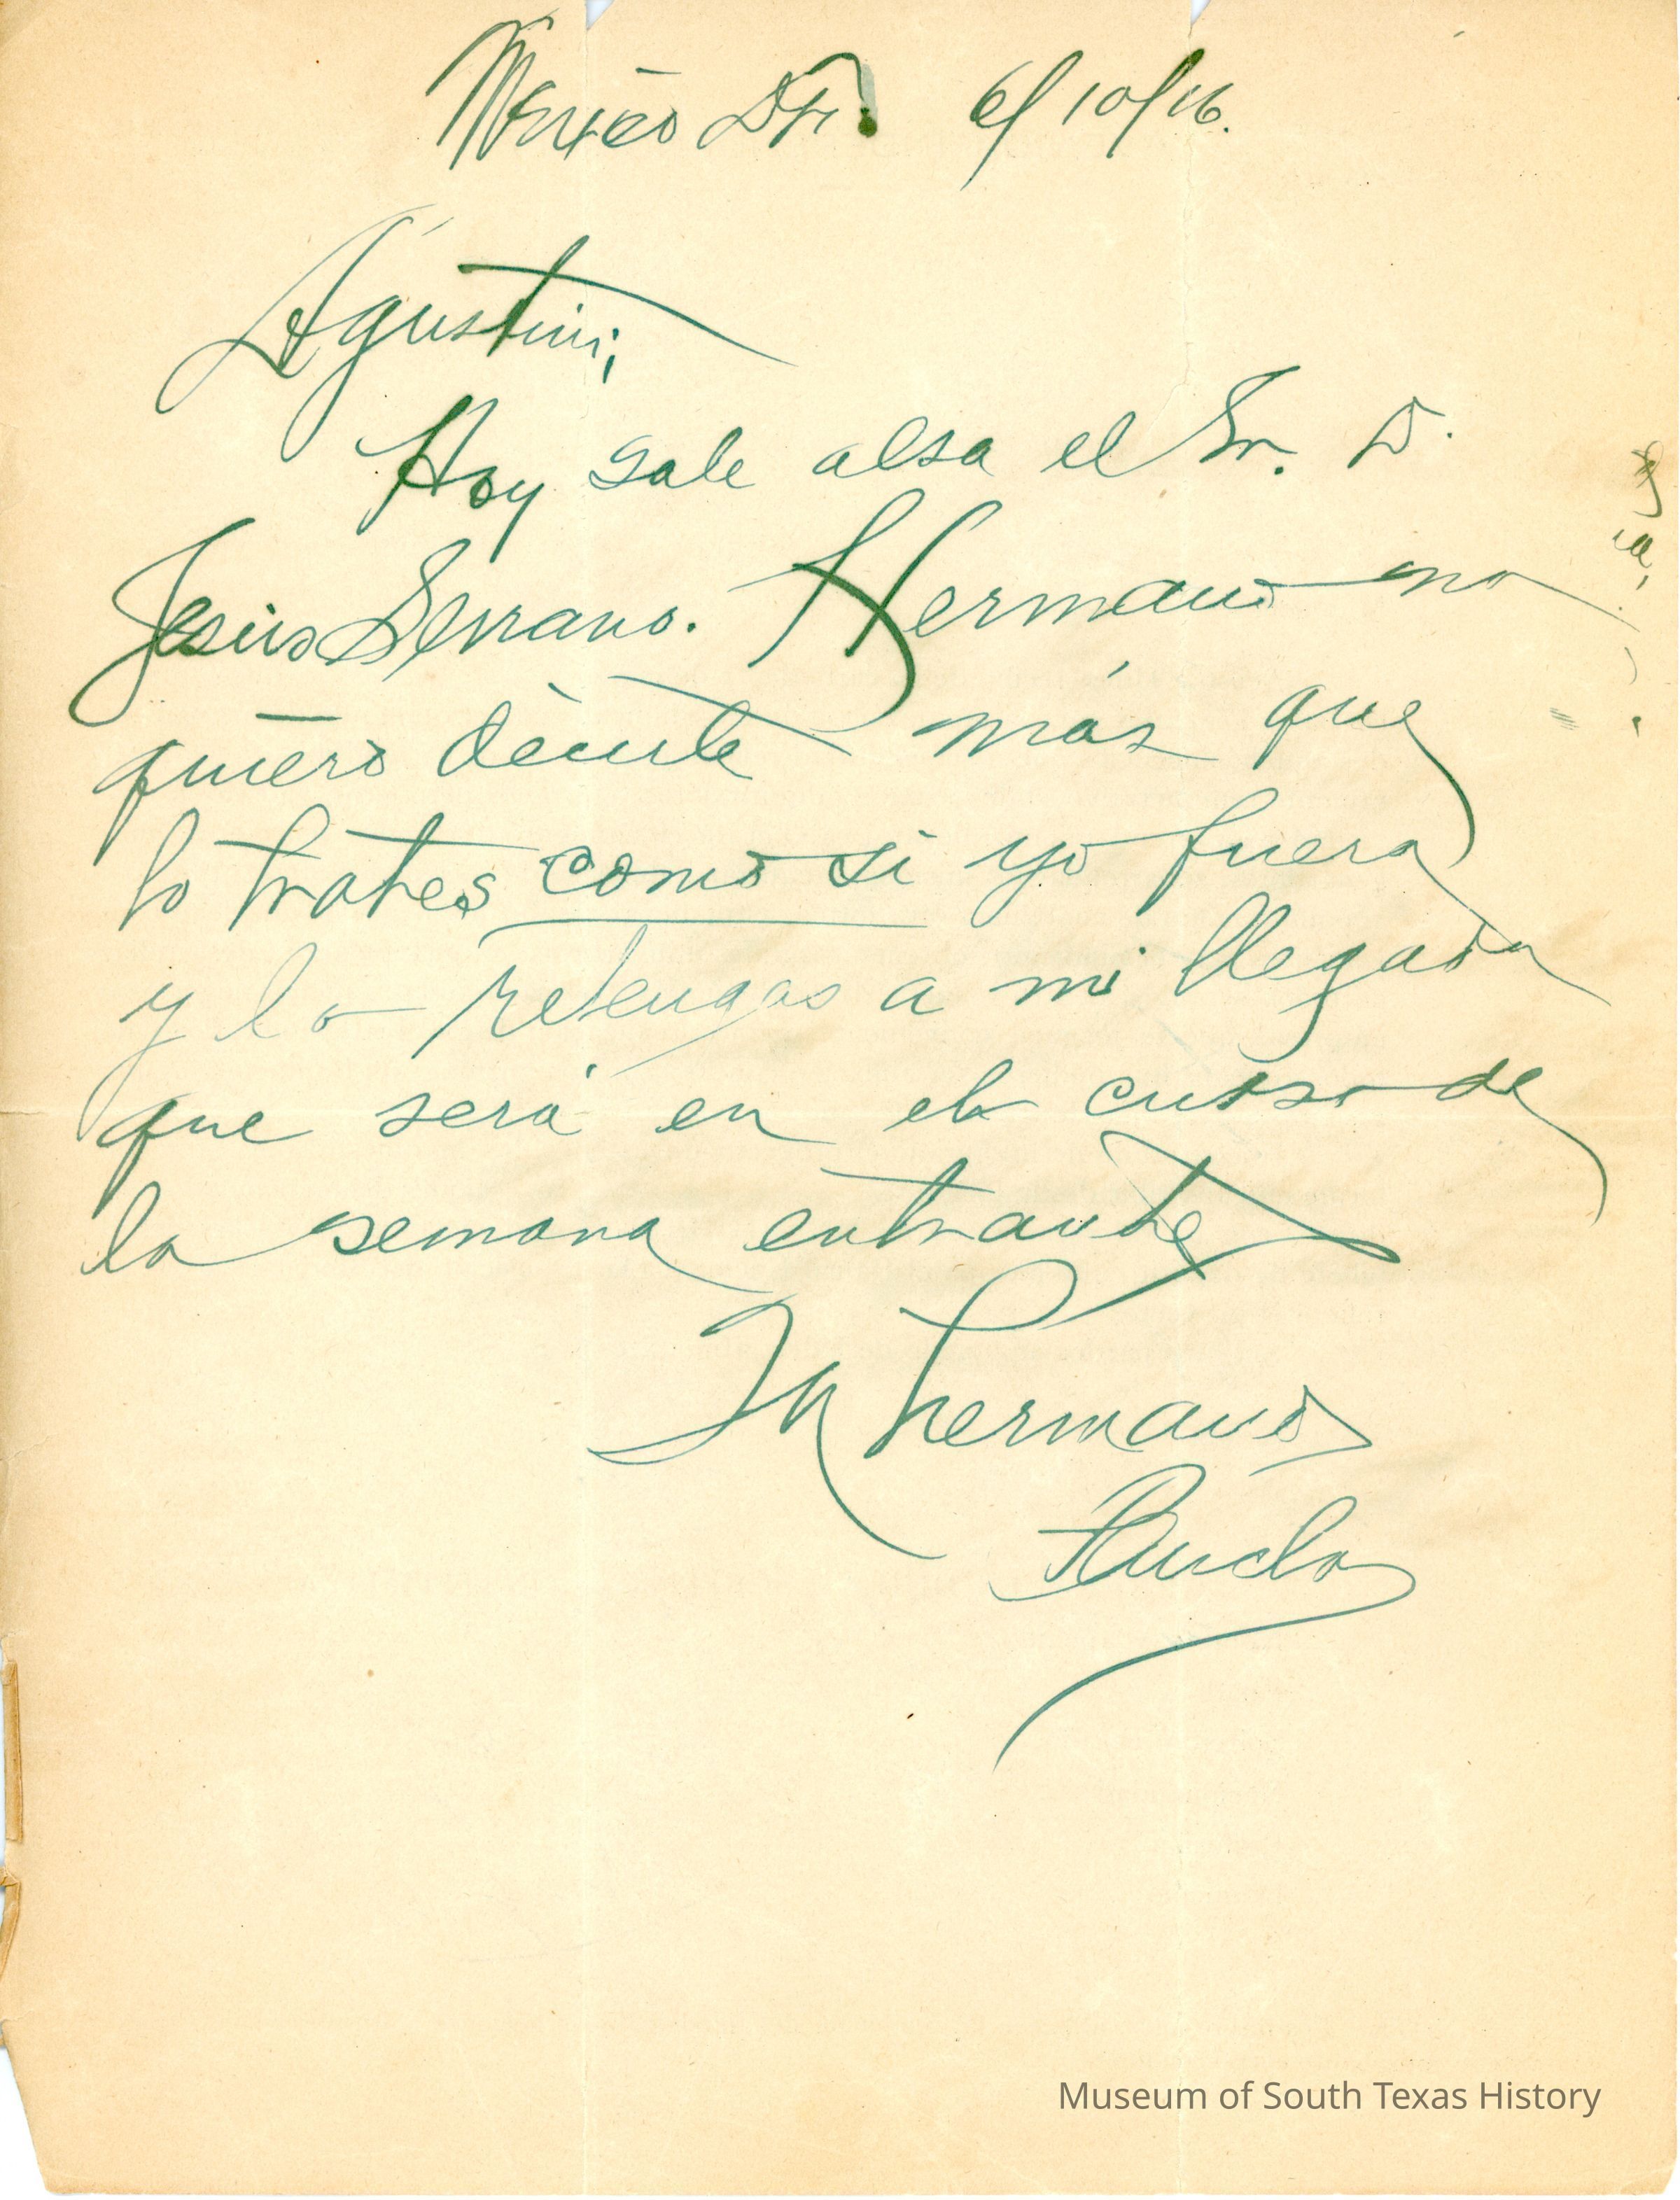 México D.F. 6/10/16.
Agustín;
Hoy sale alsa el Sr. D.
Jesús Serrano. Hermano no
quiero decirte más que
lo trates como si yo fuera
y lo retengas a mi llegada
que será en el curso de
la semana entrante
Tu hermano
Museum of South Texas History